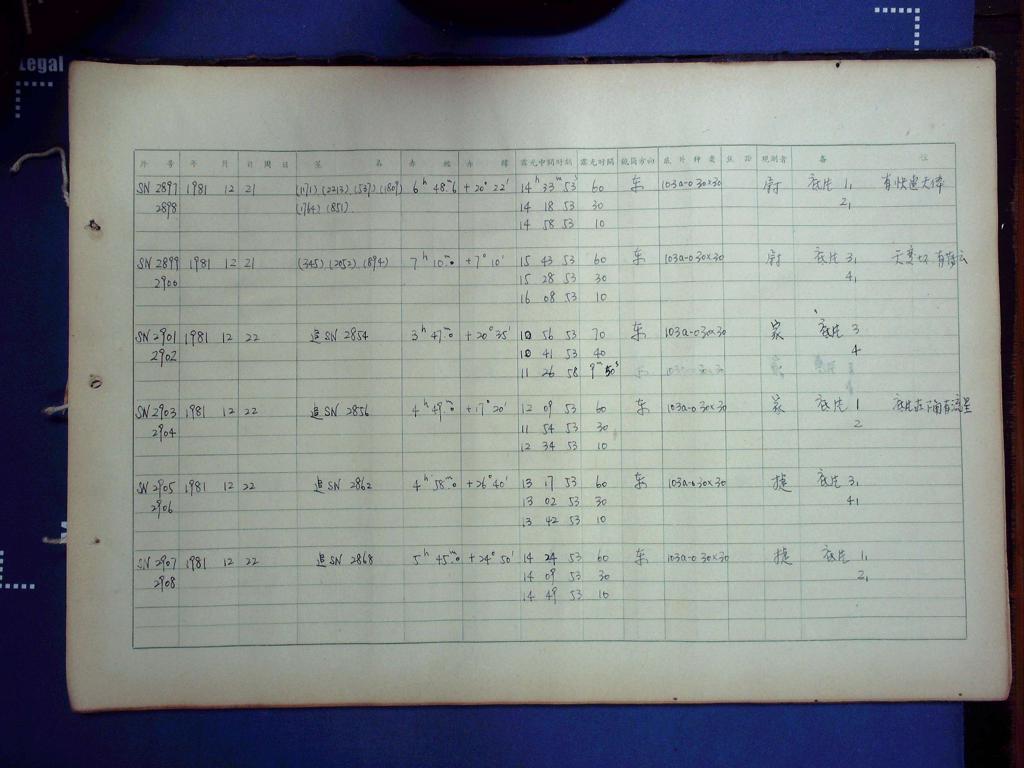 Legal
片 号 年 月 日 周 日 星 名 赤 经 赤 纬 露光中间时刻 露光时间 镜筒方向 底 片 种 类 焦 距 观测者 备 注
SN 2897 1981 12 21 (1171) (2213) (537) (1809) 6h 48m.6 +20° 22' 14h 33m 53s 60 东 103a-O 30×30 尉 底片 1,
2898 (1764) (851) 14 18 53 30 2,
14 58 53 10
SN 2899 1981 12 21 (345) (2052) (894) 7h 10m.0 +7° 10' 15 43 53 60 东 103a-O 30×30 尉 底片 3,
2900 15 28 53 30 4,
16 08 53 10
SN 2901 1981 12 22 追 SN 2854 3h 47m.0 +20° 35' 10 56 53 70 东 103a-O 30×30 家 底片 3
2902 10 41 53 40 4
11 26 58 9m 50s
SN 2903 1981 12 22 追 SN 2856 4h 49m.0 +17° 20' 12 09 53 60 东 103a-O 30×30 家 底片 1 底片在下角有流星
2904 11 54 53 30 2
12 34 53 10
SN 2905 1981 12 22 追 SN 2862 4h 58m.0 +26° 40' 13 17 53 60 东 103a-O 30×30 捷 底片 3,
2906 13 02 53 30 4,
13 42 53 10
SN 2907 1981 12 22 追 SN 2868 5h 45m.0 +24° 50' 14 24 53 60 东 103a-O 30×30 捷 底片 1,
2908 14 09 53 30 2,
14 49 53 10